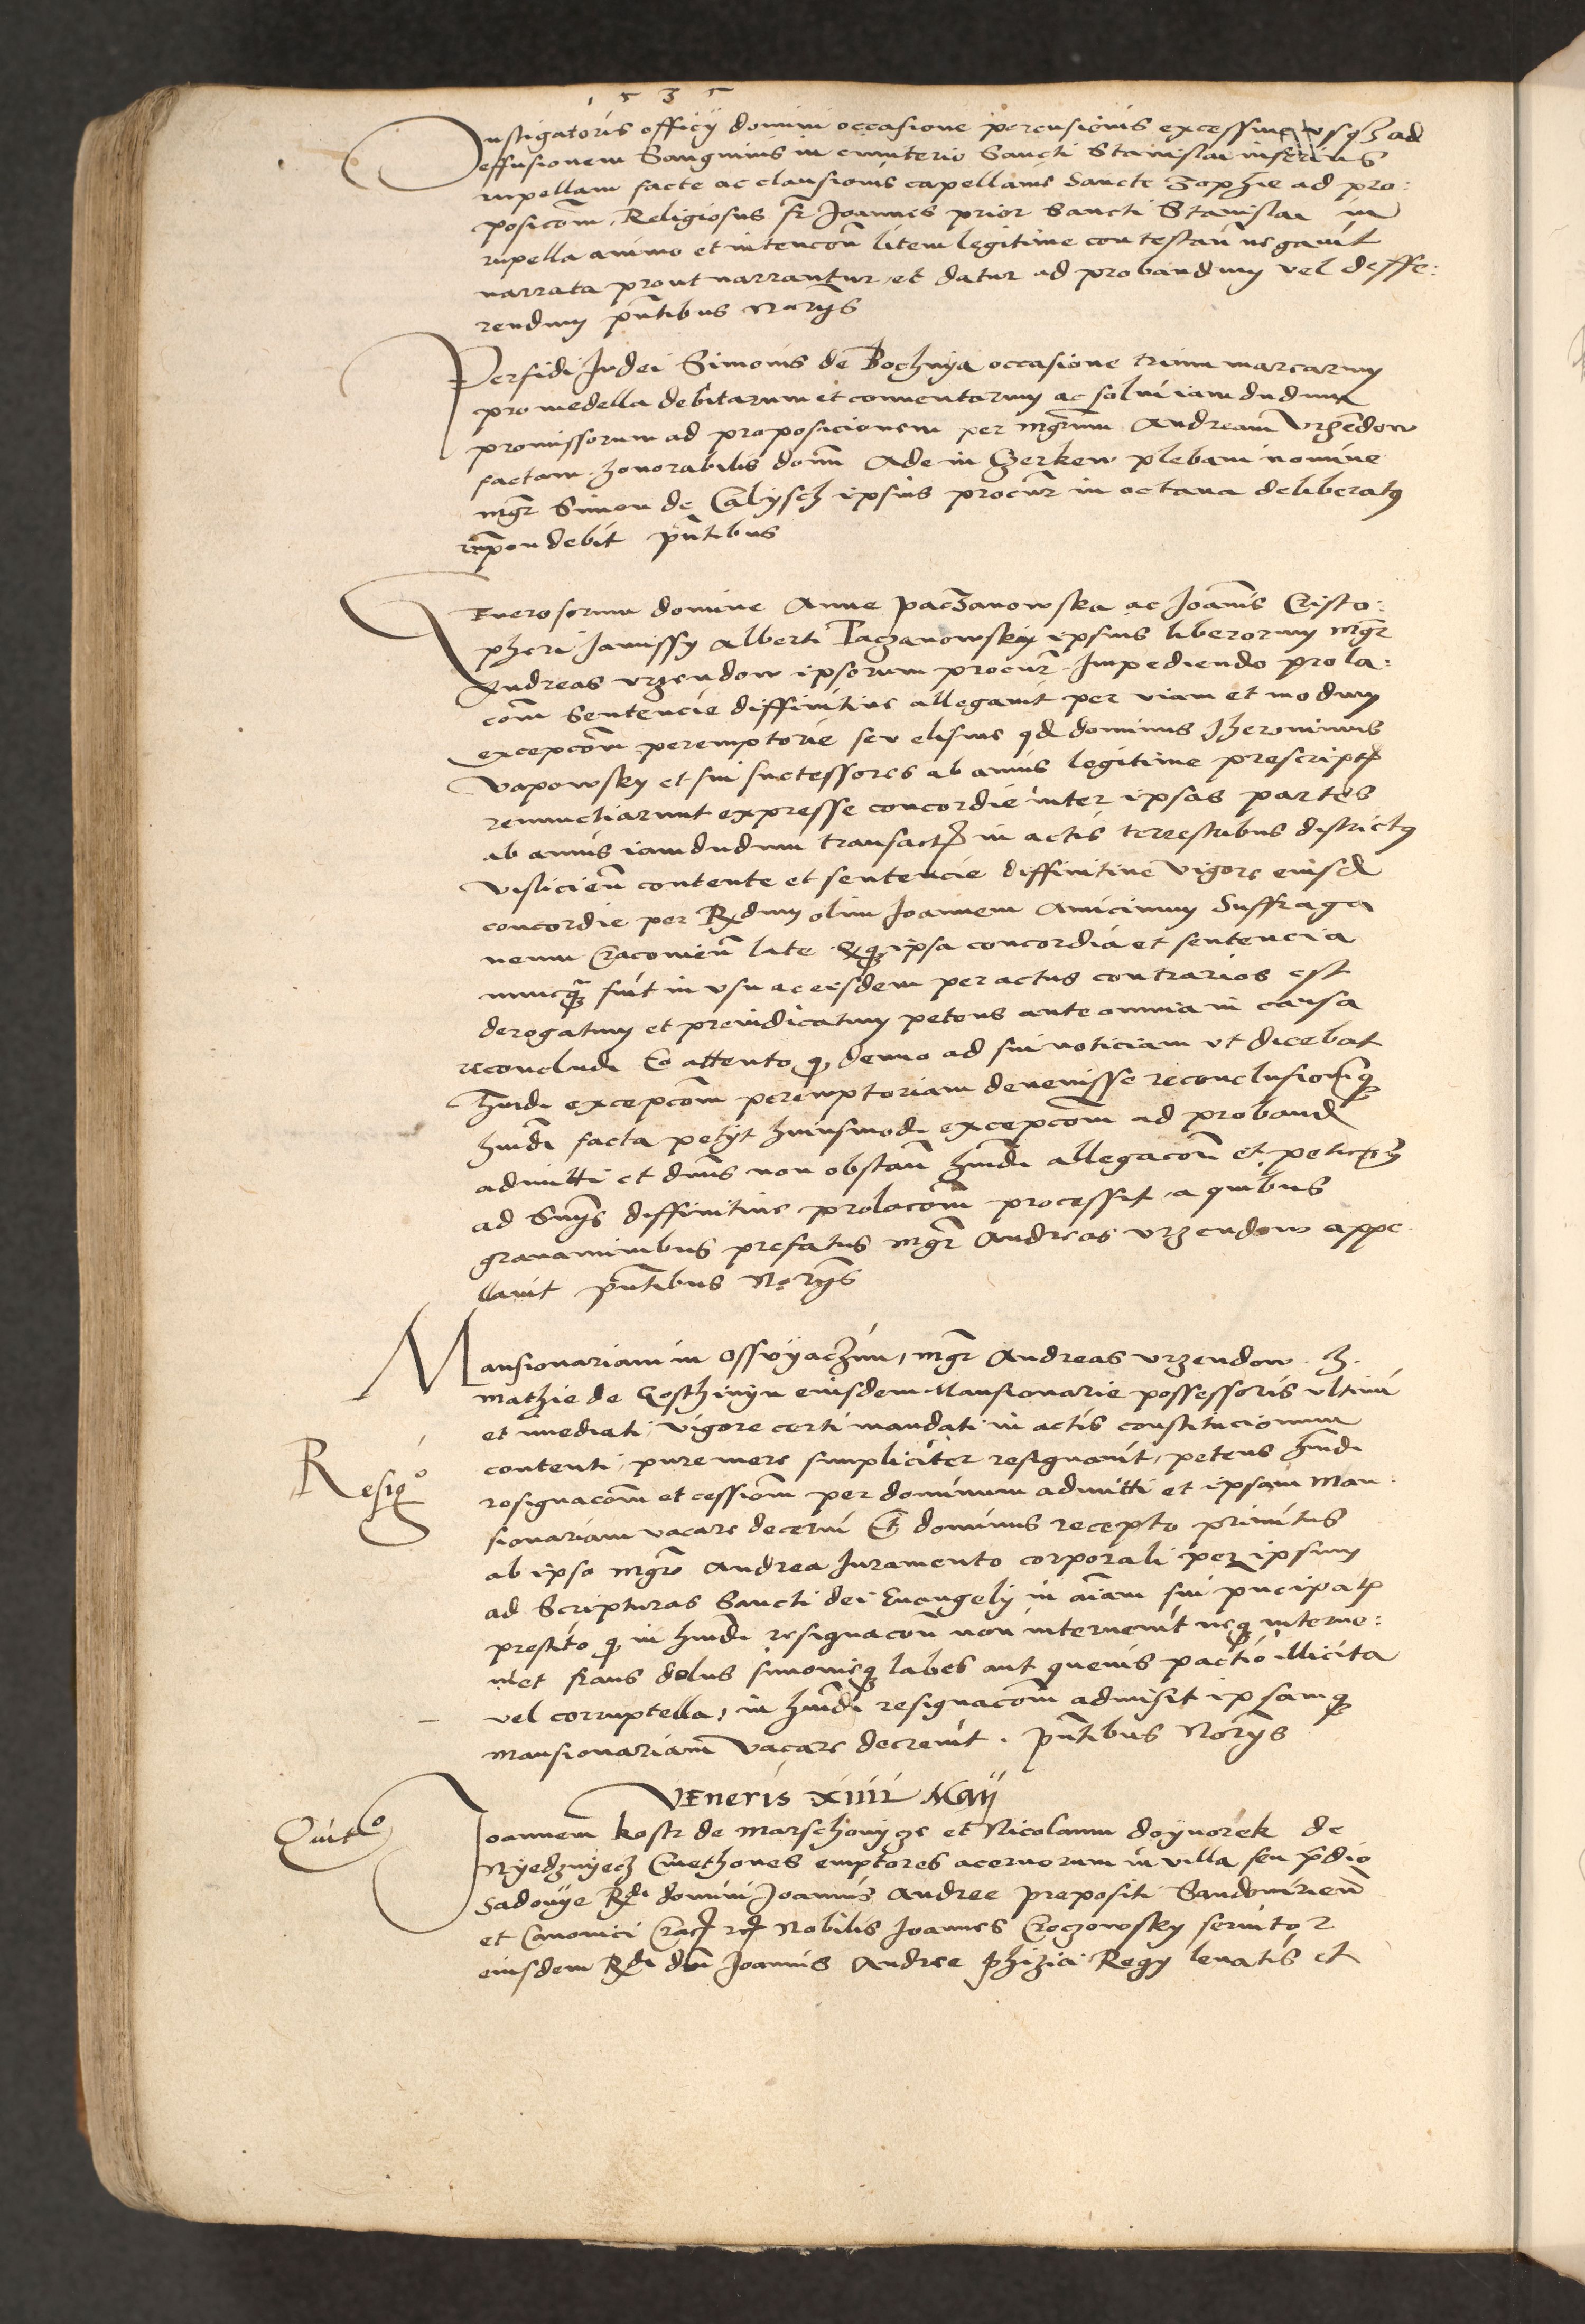 1535
Instigatoris officij domini occasione percusionis excessive usq3 ad
effusionem Sanguinis in cimiterio Sancti Stanislai inferius
rupellam facte ac clausionis capellanie Sancte Zophie ad pro:
posicōm Religiosus fr Joannes prior Sancti Stanislai in
rupella animo et intencōn litem legitime contestan̄ negavit
narrata prout narrantur et datur ad probandum vel deffe:
rendum pn̄tibus Norijs
Perfidi Judei Simonis de Bochnya occasione trium marcarum
pro medella debitarum et conventarum ac solvi iamdudum
promissorum ad proposicionem per mgrum Andream Urzēdow
factam honorabilis domī Ade in Gzerkew plebani nomine
mgr Simon de Calijsch ipsius procur̄ in octava deliberatus
respondebit pn̄tibus
Generosorum domine Anne paczanowska ac Joanīs Cristo:
pheri Janussij Alberti Paczanowskij ipsius liberorum mgr
Andreas urzendow ipsorum procur̄ Impediendo prola:
cōm Sentencie diffinitive allegavit per viam et modum
excepcōm peremptorie seu elisive qd dominus Iheronimus
Vapowsky et sui successores ab annis legitime prescript
renunctiarunt expresse concordie inter ipsas partes
ab annis iamdudum transact in actis terrestribus districtus
visliciēn contente et sentencie diffinitive vigore eiusd
concordie per Rdum olim Joannem Amicinum Suffraga
neum Cracoviēn late Et q ipsa concordia et sentencia
nuncq̄ fuit in usu ac eisdem per actus contrarios est
derogatum et preiudicatum petens ante omnia in causa
reconcludi Eo attento q denuo ad sui noticiam ut dicebat
hmōdi excepcōm peremptoriam devenisse reconclusioneq
hmōdi facta petijt huiusmodi excepcōm ad proband
admitti et dn̄us non obstan̄ hmōdi allegacōn et peticōn
ad Snijs diffinitive prolacōm processit a quibus
gravaminibus prefatus mgr Andreas urzendow appe
llavit pn̄tibus Norijs
Mansionariam in Osswyaczim, mgr Andreas urzendow
Mathie de Gosthinyn eiusdem Mansionarie possessoris ultimi
et imediati vigore certi mandati in actis constitucionum
contenti pure mere simpliciter resignavit, petens hmōdi
Resigo
resignacōm et cessiōm per dominum admitti et ipsam Man:
sionariam vacare decerni Et dominus recepto primitus
ab ipso mgro Andrea Iuramento corporali per ipsum
ad Scripturas Sancti dei Evangelij in aīam sui pncipalis
prestito q in hmōdi resignacōn non intervenit neq interve:
niet fraus dolus simonieq labes aut quevis pactio illicita
vel corruptella, in hmōdi resignacōm admisit ipsamq
mansionariam vacare decrevit. pn̄tibus Norijs
VEneris xiiii Maij
Quito
Joannem kostr de Marschowijcze et Nicolaum doijnorek de
Nyedzwyecz Cmethones emptores acervorum in villa seu pdio
Sadowye Rdi domini Joannis Andree prepositi Sandomiriēn
et Canonici Crac Nobilis Joannes Croczowsky servitor
eiusdem Rdi dni Joannis Andree phizici Regij levatis et